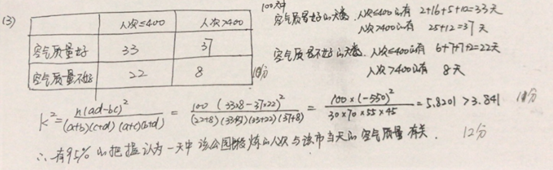 (3)
人次≤400 人次>400
空气质量好 33 37
空气质量不好 22 8 10分
100天中
空气质量好的天数 人次≤400的有 2+16+5+10=33天
人次>400的有 25+12=37天
空气质量不好的天数 人次≤400的有 6+7+7+2=22天
人次>400的有 8天
K²=n(ad-bc)²/(a+b)(c+d)(a+c)(b+d) = 100×(-550)²/30×70×55×45 = 5.8201>3.841
∴有95%的把握认为一天中该公园锻炼的人次与该市当天的空气质量有关. 12分